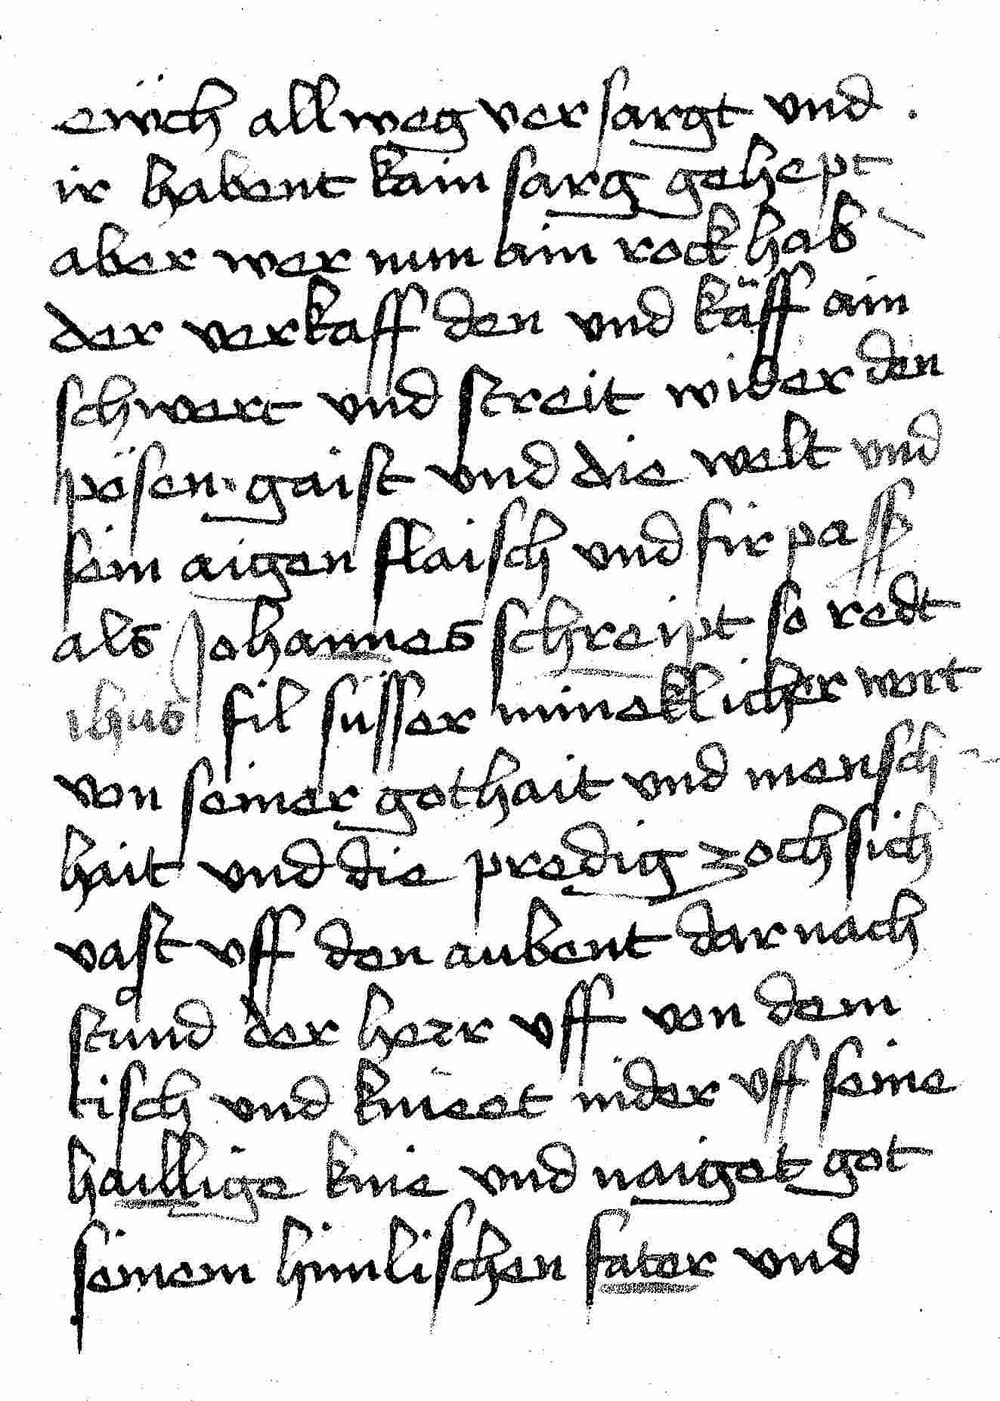 ewch allweg versargt vnd .
ir habent kain sarg gehept
aber wer nun ain rock hab
der verkaff den vnd käff ain
schwert vnd streit wider den
pösen gaist vnd die welt vnd
sein aigen flaisch vnd fir pass
als Johannes schreipt so redt
ihus fil süsser mineklicher wort
von seiner gothait vnd mensch-
hait vnd die predig zoch sich
vast vff den aubent dar nach
stůnd der herr vff von dem
tisch vnd knieet nider vff seine
haillige knie vnd naiget got
seinem himlischen fater vnd